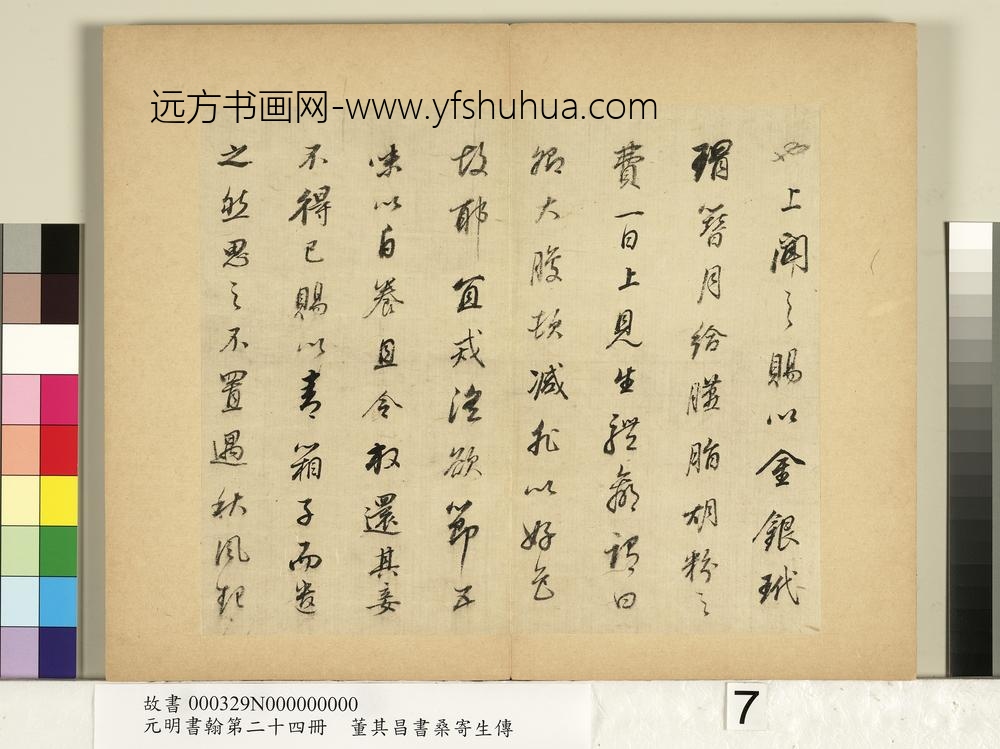 远方书画网-www.yfshuhua.com
上聞之賜以金銀玳
瑁簪月給臙脂胡粉之
費一日上見生體羸謂曰
卿大腹頓減非以好色
故耶宜戒淫欲節五
味以自養且令放還其妾
不得已賜以青箱子而遣
之然思之不置遇秋風起
故書 000329N000000000
元明書翰第二十四冊 董其昌書桑寄生傳
7